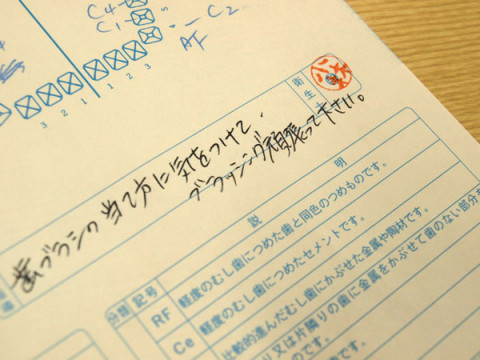 C4
C1
C2
AF
3 2 1 1 2 3
衛生士
歯ブラシの当て方に気をつけて、
ブラッシング頑張って下さい。
説明
分類 記号
RF 軽度のむし歯につめた歯と同色のつめものです。
Ce 軽度のむし歯につめたセメントです。
比較的進んだむし歯にかぶせた金属や陶材です。
り又は片隣りの歯に金属をかぶせて歯のない部分を
のです。